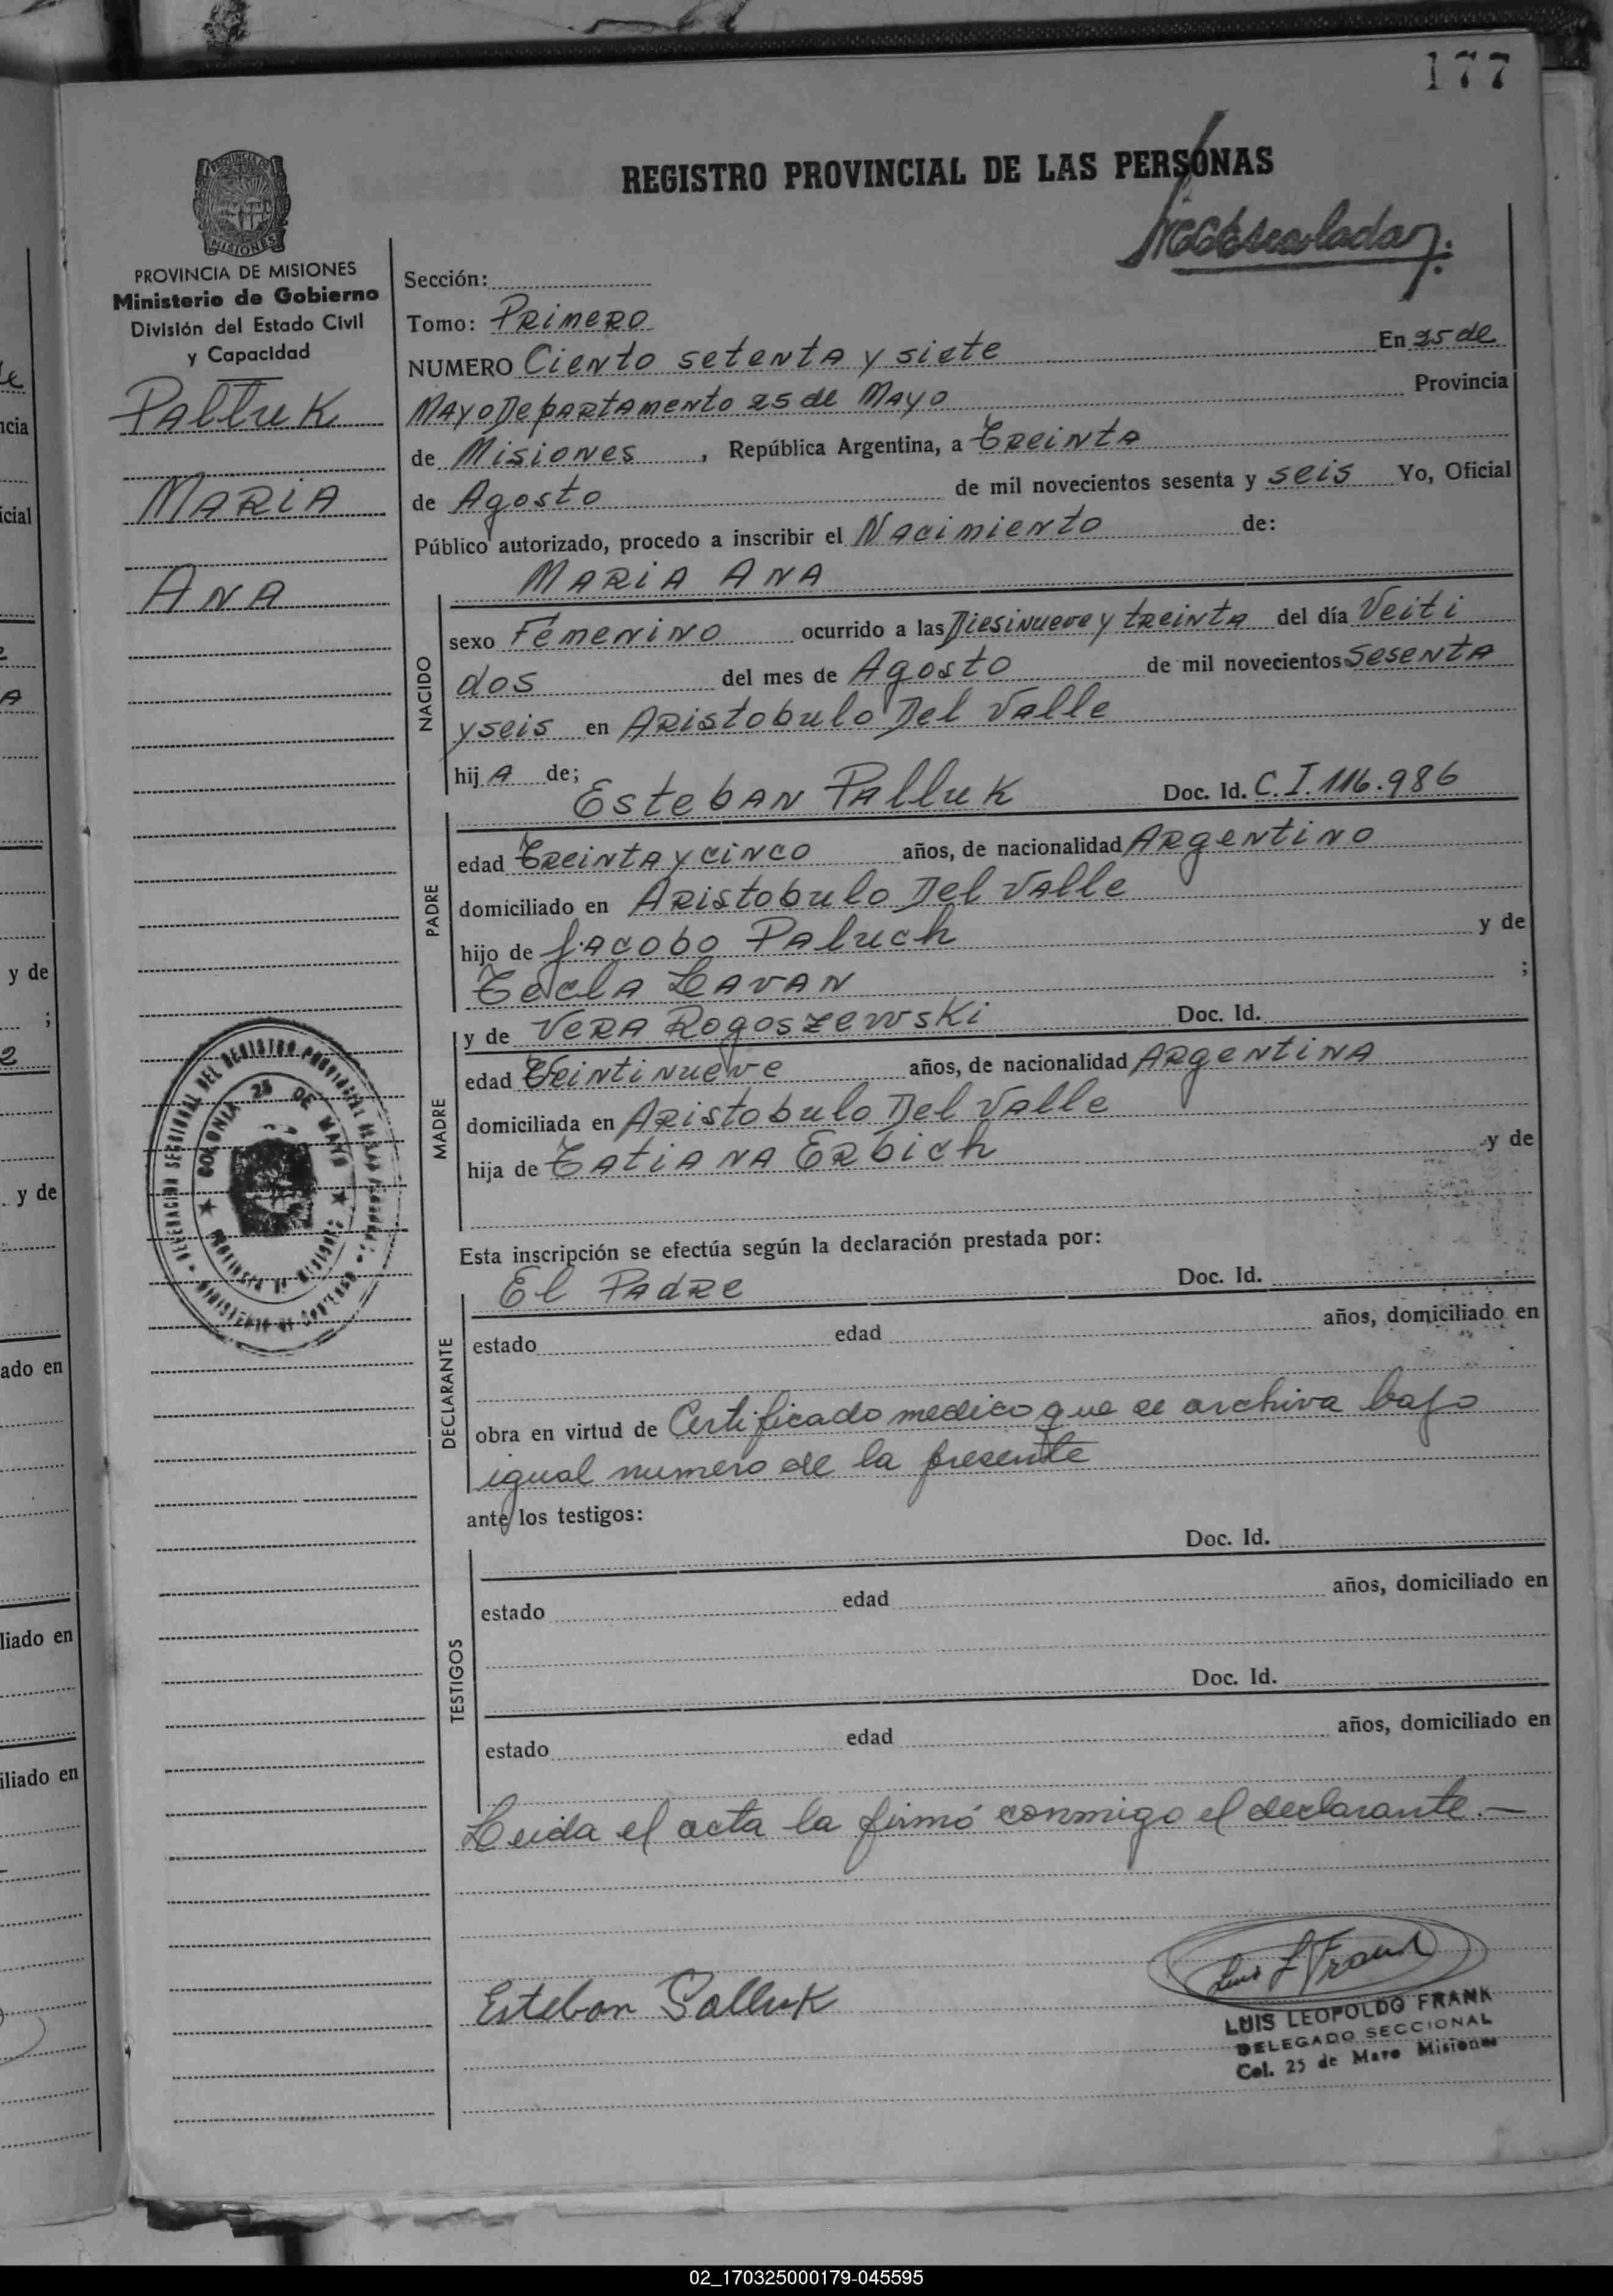 177
REGISTRO PROVINCIAL DE LAS PERSONAS
PROVINCIA DE MISIONES
Ministerio de Gobierno
División del Estado Civil
y Capacidad
Palluk
MARIA
ANA
Sección:
Tomo: PRIMERO
NUMERO Ciento setenta y siete En 25 de
Mayo Departamento 25 de Mayo Provincia
de Misiones, República Argentina, a Treinta
de Agosto de mil novecientos sesenta y seis Yo, Oficial
Público autorizado, procedo a inscribir el Nacimiento de:
MARIA ANA
NACIDO
sexo Femenino ocurrido a las Diesinueve y treinta del día Veiti
dos del mes de Agosto de mil novecientos Sesenta
y seis en Aristobulo Del Valle
hij A de;
Esteban Palluk Doc. Id. C.I. 116.986
PADRE
edad Treinta y cinco años, de nacionalidad Argentino
domiciliado en Aristobulo Del Valle
hijo de Jacobo Paluch y de
Tecla Lavan ;
y de Vera Rogoszewski Doc. Id.
MADRE
edad Veintinueve años, de nacionalidad Argentina
domiciliada en Aristobulo Del Valle
hija de Tatiana Erbich y de
Esta inscripción se efectúa según la declaración prestada por:
El Padre Doc. Id.
DECLARANTE
estado edad años, domiciliado en
obra en virtud de Certificado medico que se archiva bajo
igual numero de la presente
ante los testigos:
Doc. Id.
TESTIGOS
estado edad años, domiciliado en
Doc. Id.
estado edad años, domiciliado en
Leida el acta la firmó conmigo el declarante.—
Esteban Palluk
Luis L Frank
LUIS LEOPOLDO FRANK
DELEGADO SECCIONAL
Col. 25 de Mayo Misiones
DELEGACION SECCIONAL DEL REGISTRO PROVINCIAL DE LAS PERSONAS
COLONIA 25 DE MAYO
PROVINCIA DE MISIONES
MINISTERIO DE GOBIERNO
02_170325000179-045595